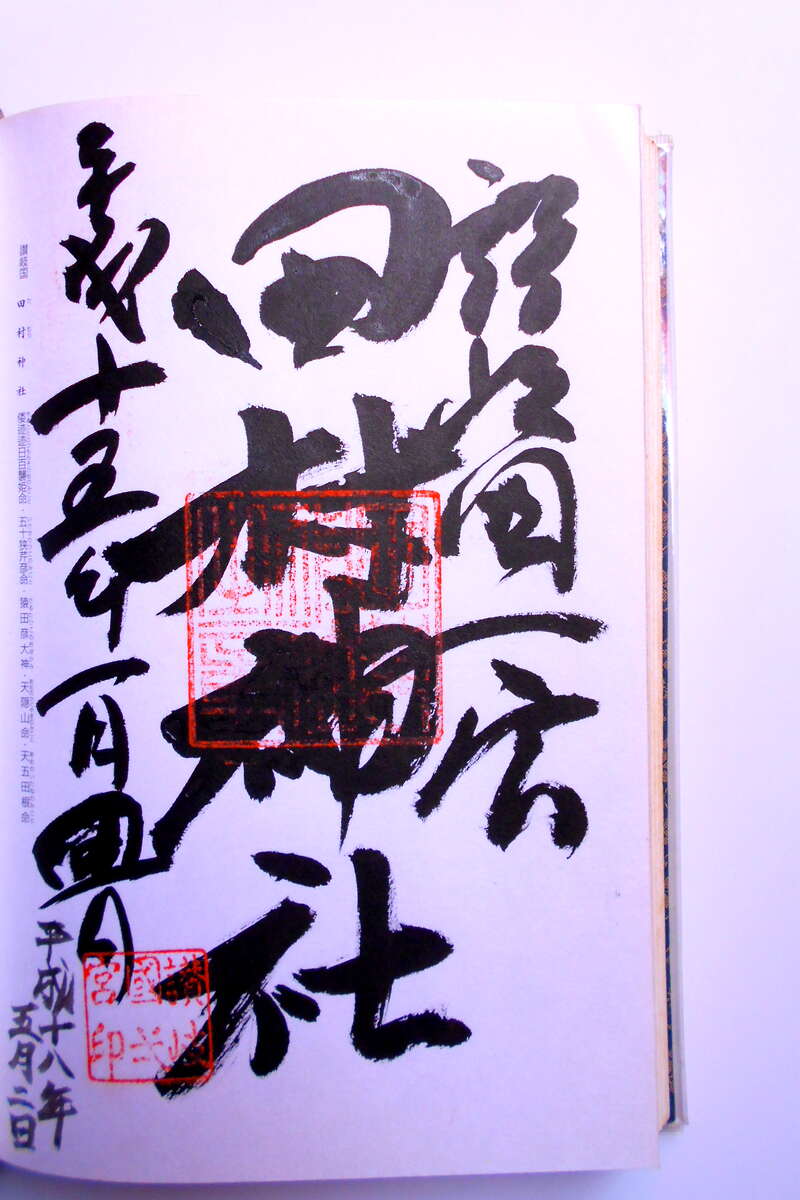 讃岐国一宮
田村神社
平成十五年一月四日
讃岐国 田村神社 倭迹迹日百襲姫命・五十狭芹彦命・猿田彦大神・天隠山命・天五田根命
平成十八年
五月二日
讃岐
國
宮印